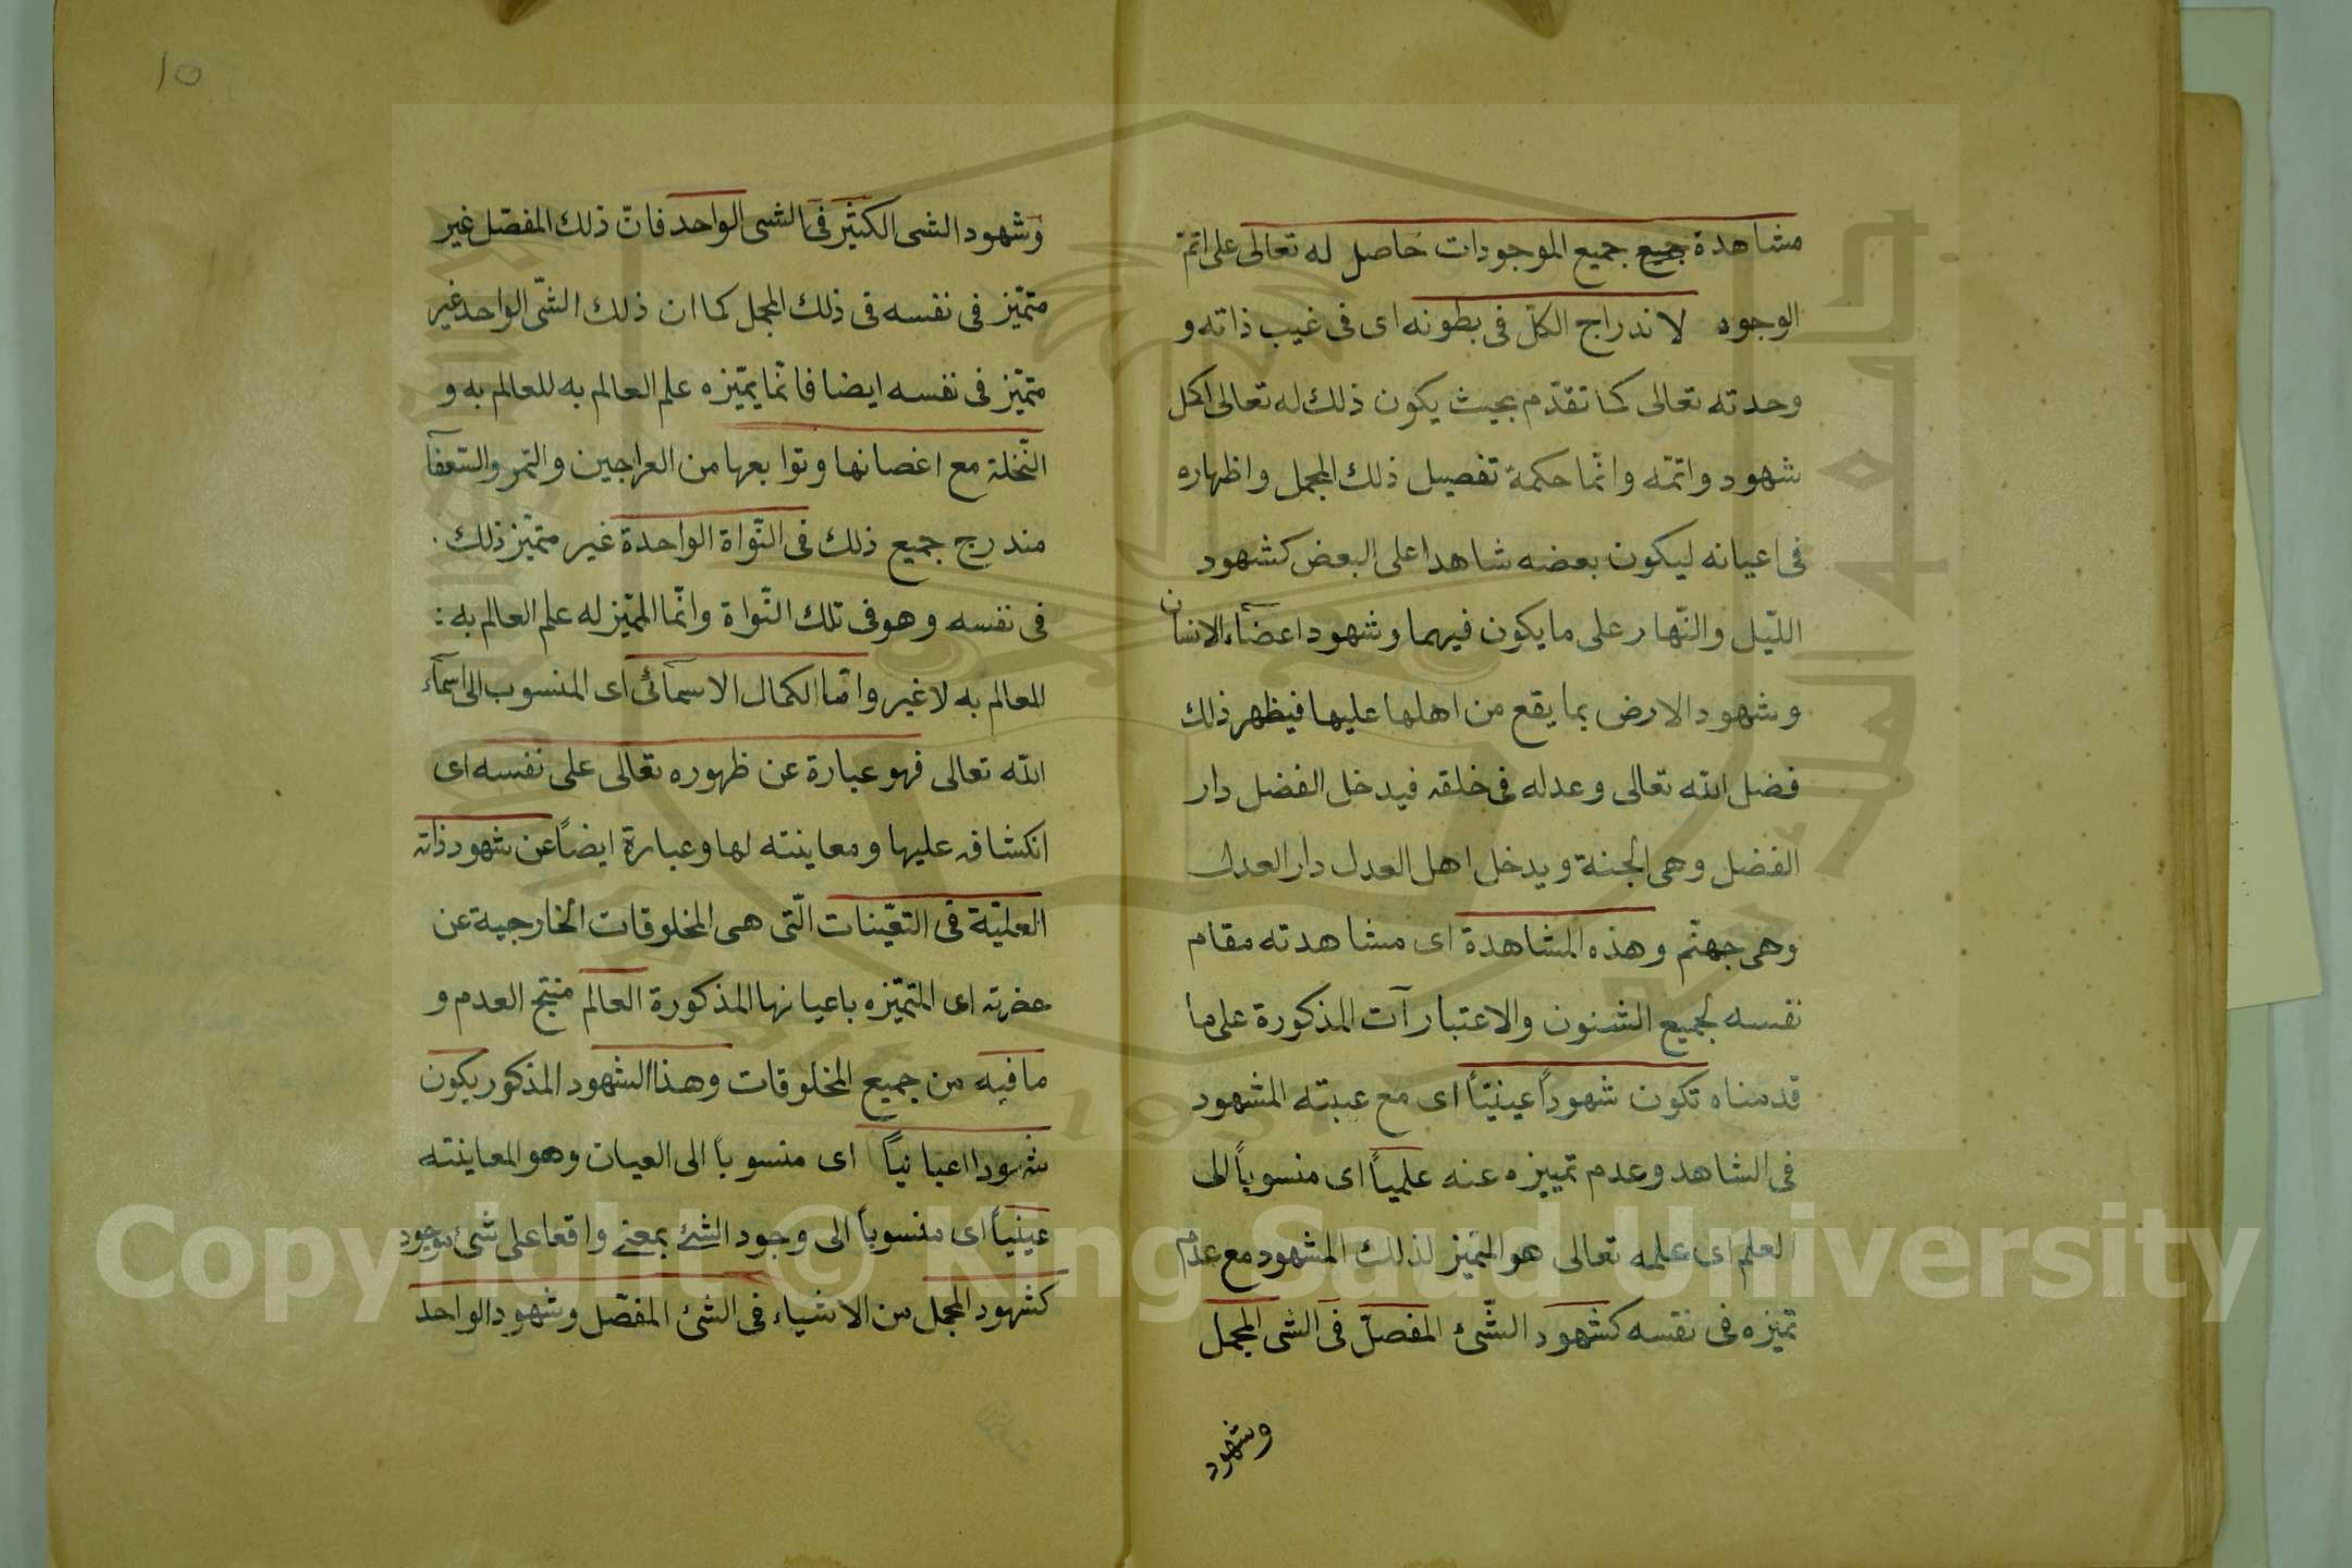 مشاهدة جميع جميع الموجودات حاصل له تعالى على اتمّ
الوجوه لاندراج الكلّ فى بطونه اى فى غيب ذاته و
وحدته تعالى كما تقدّم بحيث يكون ذلك له تعالى اكل
شهود واتمّه وانّما حكمة تفصيل ذلك المجمل واظهاره
فى اعيانه ليكون بعضه شاهدا على البعض كشهود
اللّيل والنّهار على ما يكون فيهما وشهود اعضآء الانسان
وشهود الارض بما يقع من اهلها عليها فيظهر ذلك
فضل الله تعالى وعدله فى خلقه فيدخل الفضل دار
الفضل وهى الجنة ويدخل اهل العدل دار العدل
وهى جهنّم وهذه المشاهدة اى مشاهدته مقام
نفسه لجميع الشئون والاعتبارآت المذكورة على ما
قدمناه تكون شهوداً عينيّاً اى مع عينيّه المشهود
فى الشاهد وعدم تمييزه عنه علمياً اى منسوباً الى
العلم اى علمه تعالى هو المتميز لذلك المشهود مع عدم
تميّزه فى نفسه كشهود الشّئ المفصلّ فى الشى المجمل
وشهود
10
وشهود الشى الكثير فى الشى الواحد فان ذلك المفصّل غير
متميّز فى نفسه فى ذلك المجمل كما ان ذلك الشّى الواحد غير
متميّز فى نفسه ايضا فانّما يميّزه علم العالم به للعالم به و
النّخلة مع اغصانها وتوابعها من العراجين والتمر والسّعفآ
مندرج جميع ذلك فى النّواة الواحدة غير متميّز ذلك
فى نفسه وهو فى تلك النّواة وانّما المميّز له علم العالم به :
للعالم به لا غير وامّا الكمال الاسمآئى اى المنسوب الى اسمآء
الله تعالى فهو عبارة عن ظهوره تعالى على نفسه اى
انكشافه عليها ومعاينته لها وعبارة ايضاً عن شهود ذاته
العليّة فى التعيّنات الّتى هى المخلوقات الخارجية عن
حضرته اى المتميّزه باعيانها المذكورة العالم منتج العدم و
ما فيه من جميع المخلوقات وهذا الشهود المذكور يكون
شهودا اعيانياً اى منسوباً الى العيان وهو المعاينته
عينياً اى منسوباً الى وجود الشئ بمعنى واقعا على شئ موجود
كشهود المجمل من الاشياء فى الشئ المفصّل وشهود الواحد